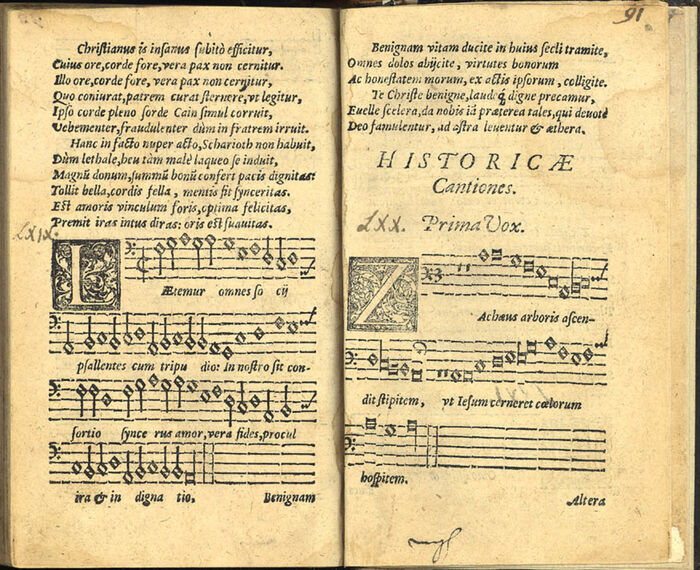 Christianus is insanus subitò efficitur,
Cuius ore, corde fore, vera pax non cernitur.
Illo ore, corde fore, vera pax non cernitur,
Quo coniurat, patrem curat sternere, vt legitur,
Ipsò corde pleno sorde Cain simul corruit,
Vehementer, fraudulenter dùm in fratrem irruit.
Hanc in facto nuper acto, Scharioth non habuit,
Dùm lethale, heu tàm malè laqueo se induit,
Magnũ donum, summũ bonũ confert pacis dignitas:
Tollit bella, cordis fella, mentis fit synceritas.
Est amoris vinculum foris, optima felicitas,
Premit iras intus diras: oris est suauitas.
LXIX.
LÆtemur omnes so cij
psallentes cum tripu dio: In nostro sit con-
sortio synce rus amor, vera fides, procul
ira & in digna tio. Benignam
91
Benignam vitam ducite in huius secli tramite,
Omnes dolos abijcite, virtutes bonorum
Ac honestatem morum, ex actis ipsorum, colligite.
Te Christe benigne, laudeq́; digne precamur,
Euelle scelera, da nobis iã præterea tales, qui deuotè
Deo famulentur, ad astra leuentur & æthera.
HISTORICÆ
Cantiones.
LXX. Prima Vox.
ZAchæus arboris ascen-
dit stipitem, vt Iesum cerneret cœlorum
hospitem.
Altera